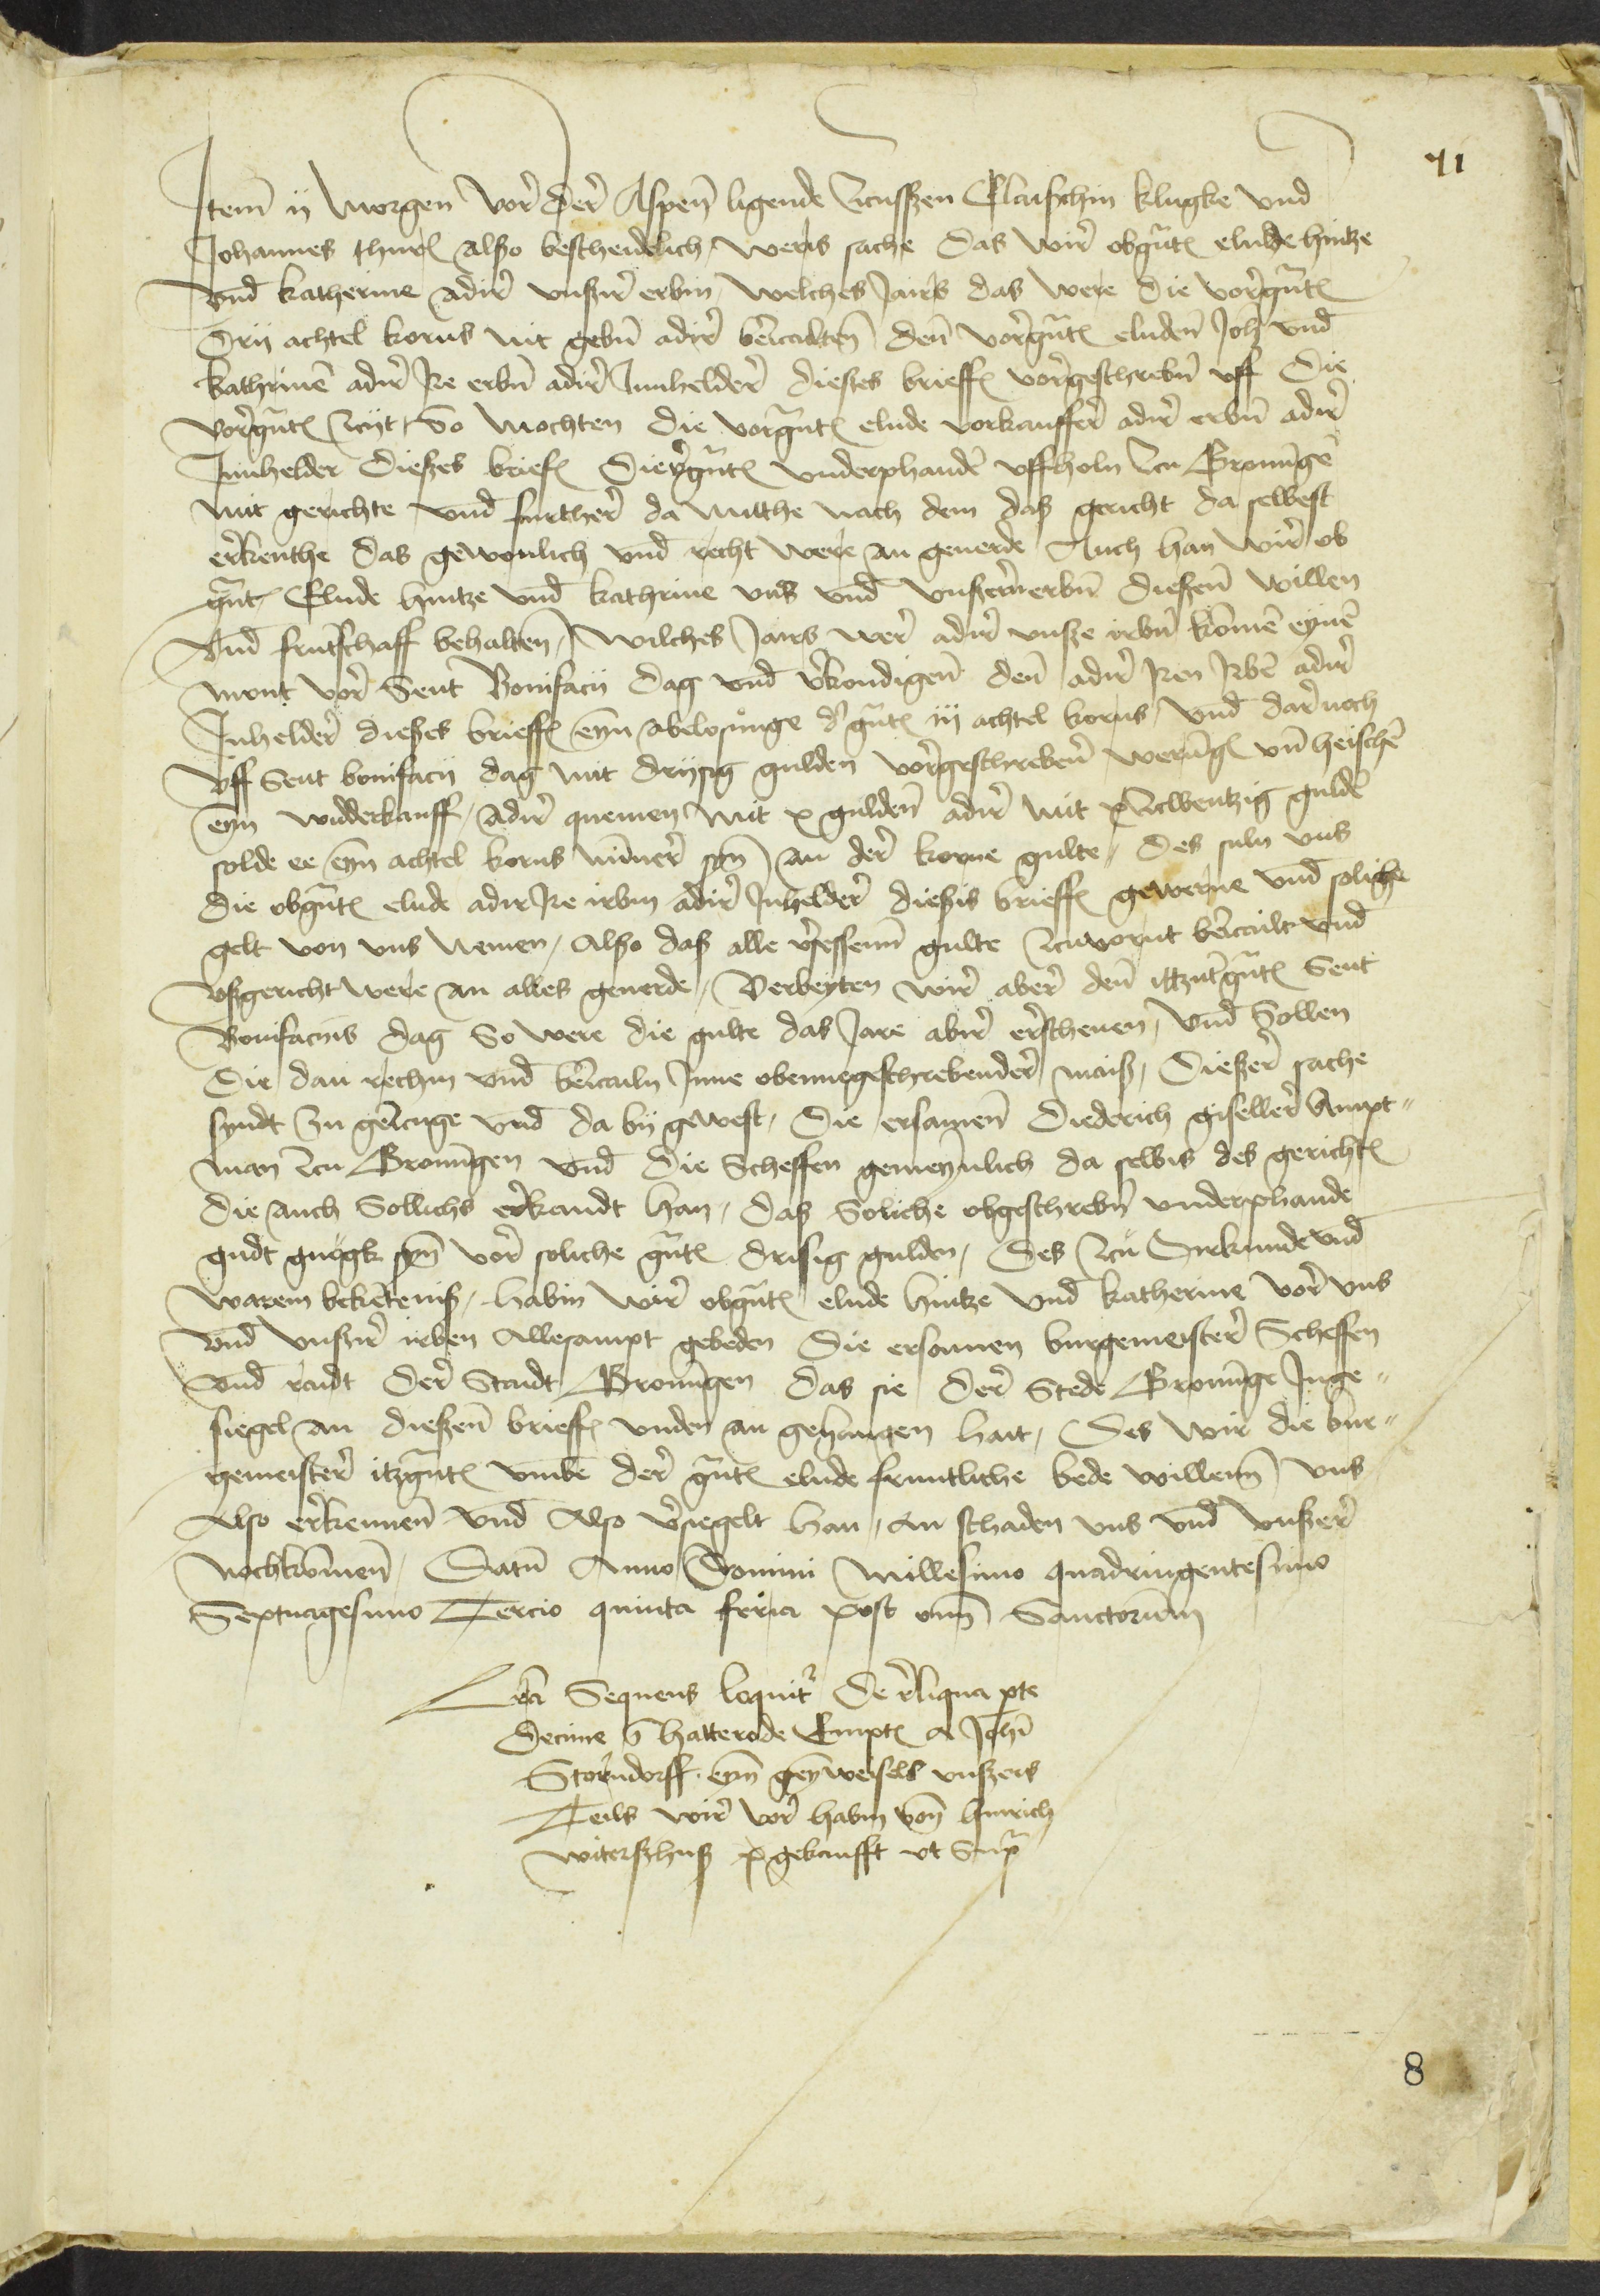 71
Item ij morgen vor der Aspen ligende zcusszen Elcischin klugke vnd
Johannes also bescheidelich weris sache das wir obgnten elude hintze
vnd katherine adir vnszir erbin welches Jairs das were die vorgnten
drij achtel korns nit gebin adir beczalten den vorgnten eluden Joh vnd
kathrinen adir Ire erbin adir Innhelder dieszes brieffs vorgeschrebin vff die
vorgnten zcijt So mochten die vorgnten elude vorkauffer adir erbin adir
Innhelder dieszes briefs die vgnten vnderphande vffholn zcu Gronunge
mit gerichte vnd further da mitthe nach dem das gericht da selbest
erkenthe das gewonlich vnd recht were an geuerde Auch han wir ob
gnt Elude hintze vnd kathrine vns vnd vnszern erbin dieszen willen
vnd fruntschaff behalten wilches Jairs wer adir vnsze irbin komen eynen
mont vor Sent Bonifacij dag vnd vkondigen den adir Iren Irben adir
Inhelder dieszes brieffs eyn abelosunge der gnten iij achtel korns vnd dar noch
vff Sent bonifacij dag mit drijsig gulden vorgeschreben werungs vnd heischen
eyn widderkauff adir quemen mit x gulden adir mit zcwentzig gulden
solde ee eyn achtel korns mynner syn an der korne gulte des suln vns
die obgnten elude adir Ire irbin adir Inhelder dieszis brieffs gewerne vnd soliche
gelt von vns nemen Also das alle vsessenn gulte zcuvornt beczailt vnd
vszgericht were an alles geuerde Verbeyten wir aber den itzutgnten Sent
Bonifacius dag So were die gulte das Jare abir erschenen vnd Sollen
die dan rechin vnd beczailn Inne obennegeschrebender maisz dieszer sache
syndt zu geczuge vnd da bij gewest die ersamen Diederich giseller Ampt-
man zcu Gronungen vnd die Scheffen gemeynlich da selbis des gerichts
die auch Sollichs erkandt han das Soliche obgeschrebin vnderphande
gudt gnugk syn vor soliche gnten drisig gulden Des zcu Orkunde vnd
warem bekentenisz habin wir obgnten elude hintze vnd katherine vor vns
vnd vnszir irben Allesampt gebeden die ersamen burgemeister Scheffen
vnd raidt der Staidt Gronungen das sie der Stede Gronunge Inge-
siegel an dieszen brieffs vnden an gehangen hait Des wir die bur-
gemeister itzgnten vmbe der gnten elude fruntliche bede willenn vns
Also erkennen vnd Also vsiegelt han an schaden vns vnd vnszer
nochkomen Datum Anno Domini Millesimo quadringentesimo
Septuagesimo Tercio quinta feria post omnium Sanctorum
Lra Sequens loquitur De reliqua pte
decime in hatterode Empta a Johi
Storndorff eyn gemeynweisels vnszers
Teils wir vor habin von hinrich
witerszhusz gekaufft vt Supra
8